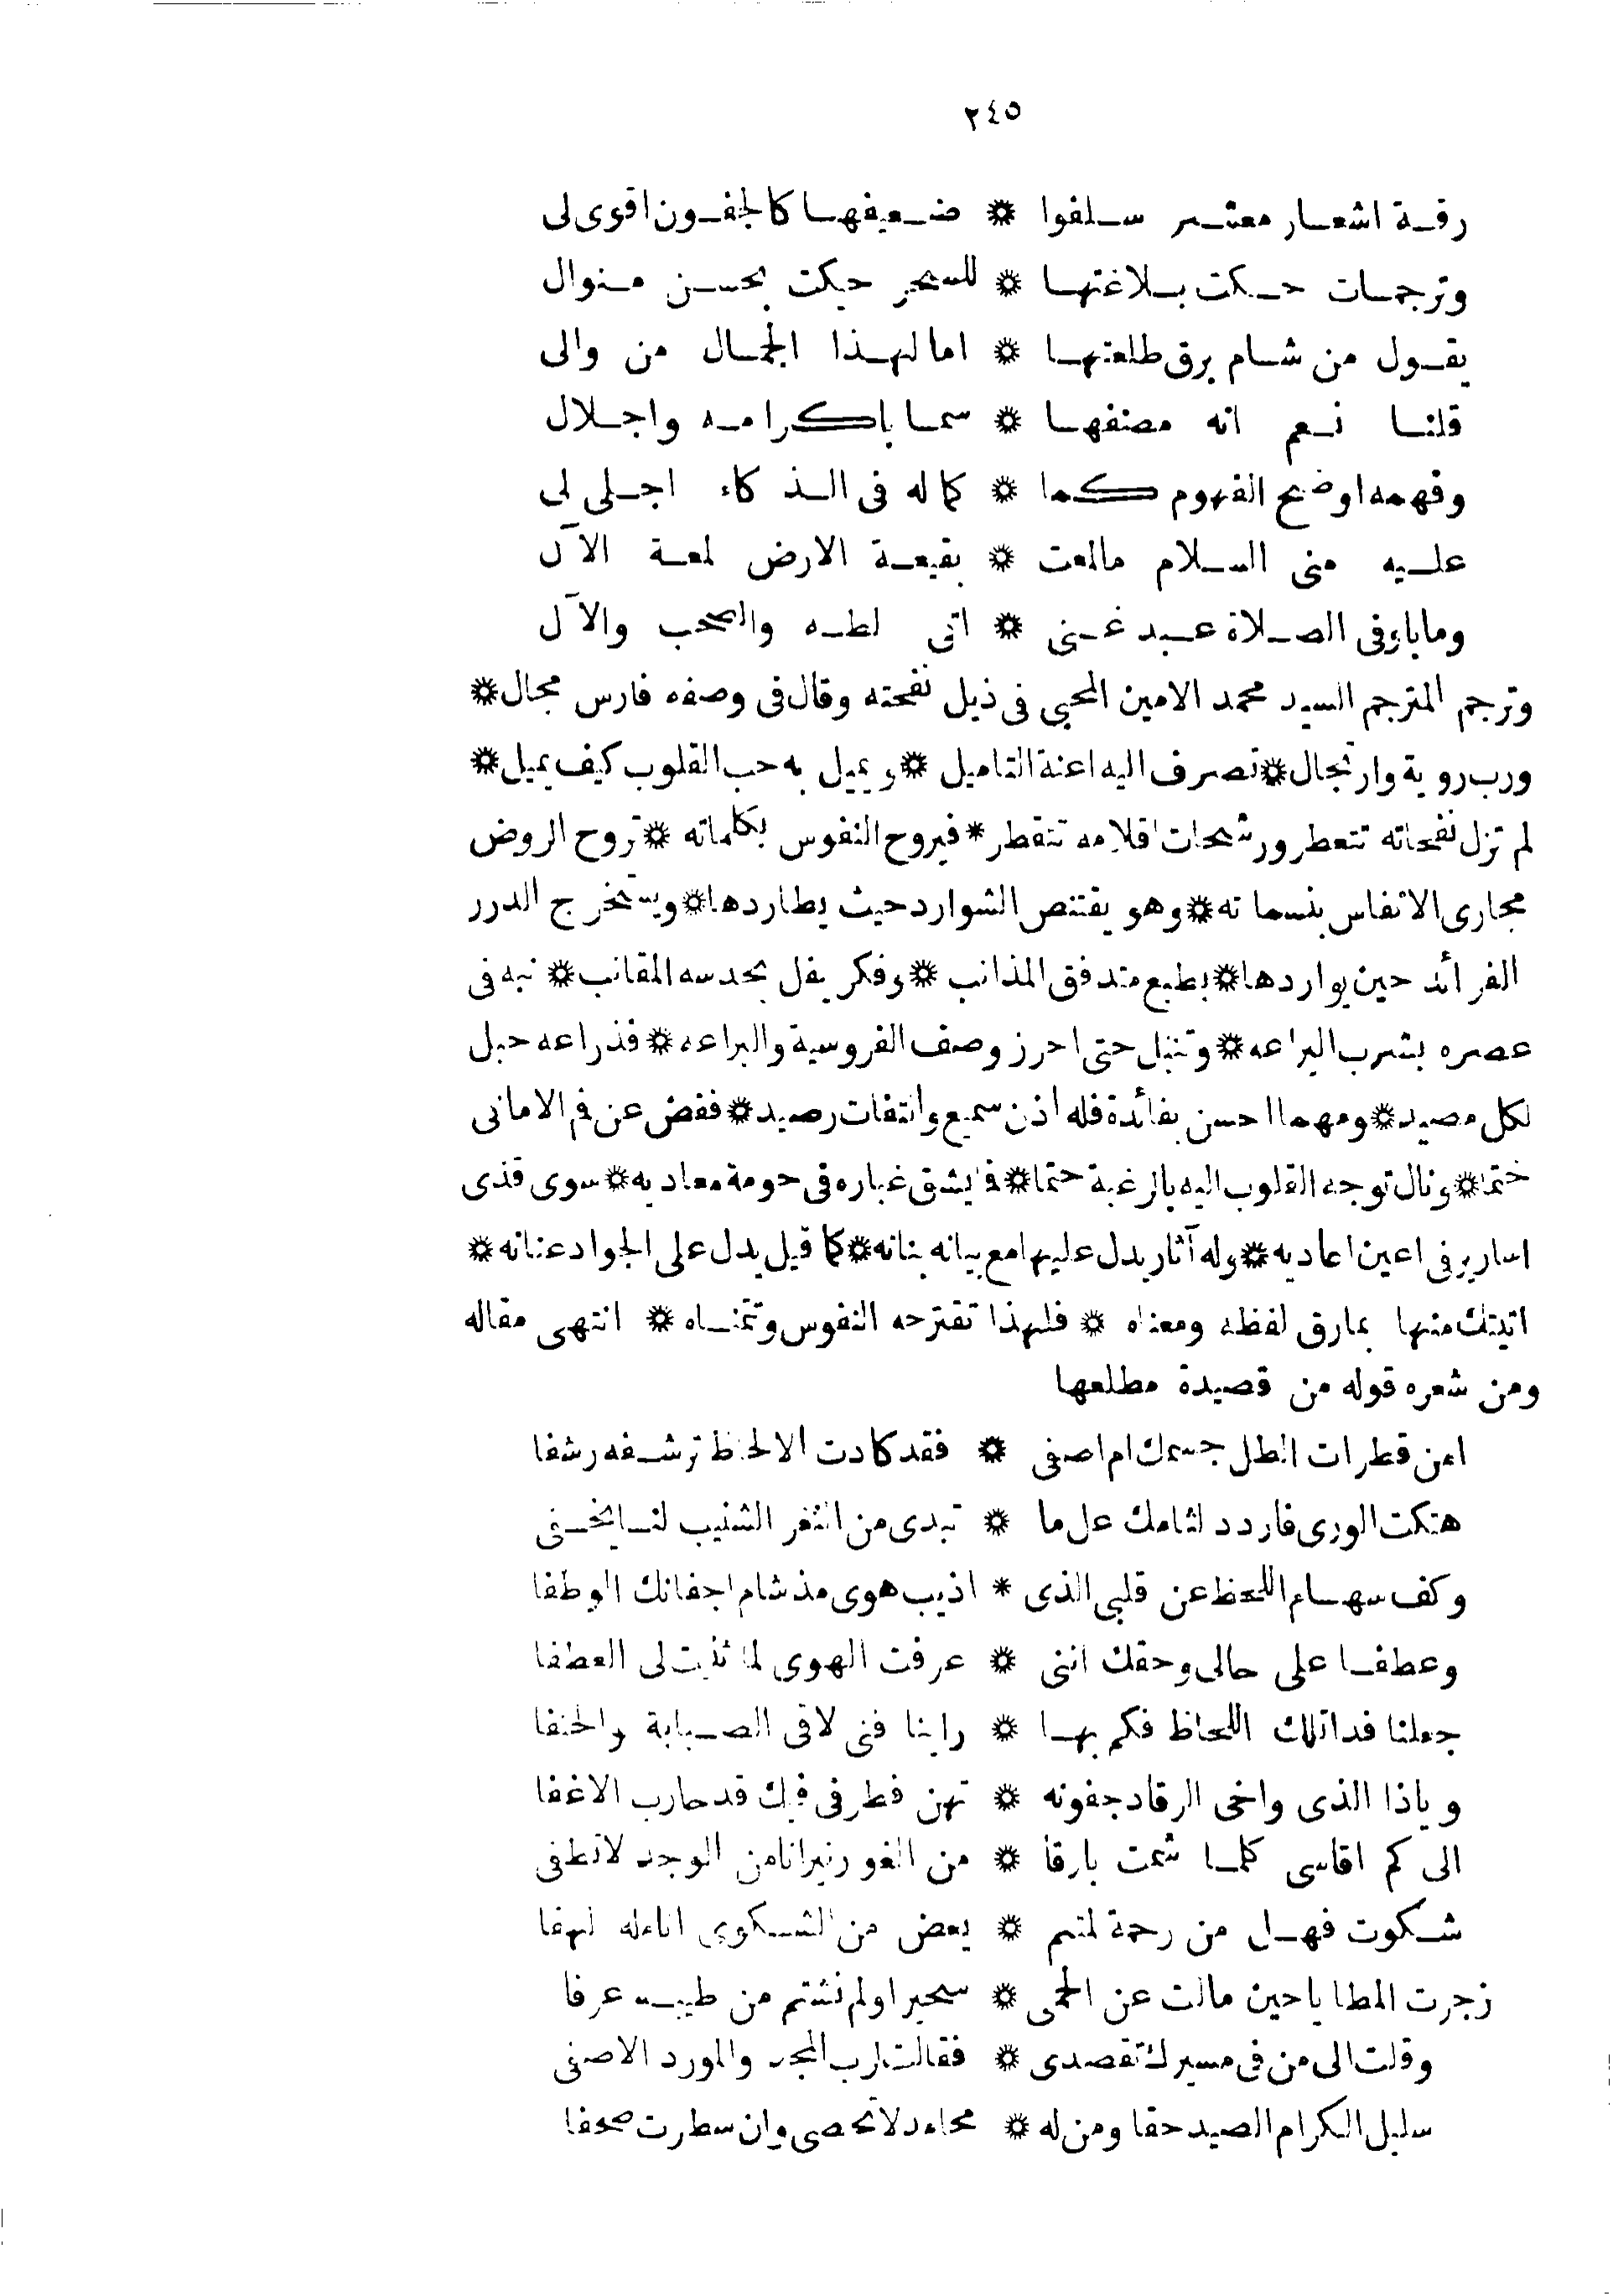 ٢٤٥
رقة اشعار معشر سلفوا ❊ ضعيفها كالجفون اقوى لى
وترجمات حكت بلاغتها ❊ للسحر حيكت بحسن منوال
يقول من شام برق طلعتها ❊ اما لهذا الجمال من والى
قلنا نعم انه مصنفها ❊ سما باكرامه واجلال
وفهمه اوضح الفهوم كما ❊ كماله فى الذكاء اجلى لى
عليه منى السلام مالمعت ❊ بقيعة الارض لمعة الآل
وما باوفى الصلاة عبد غنى ❊ اتى لطه والصحب والآل
وترجم المترجم السيد محمد الامين المحبى فى ذيل نفحته وقال فى وصفه فارس مجال ❊
ورب روية وارتجال ❊ تصرف اليه اعنة التاميل ❊ ويميل به حب القلوب كيف يميل ❊
لم تزل نفحاته تتعطر ورشحات اقلامه تتقطر * فيروح النفوس بكلماته ❊ تروح الروض
مجارى الانفاس بنسماته ❊ وهو يقتنص الشوارد حيث يطاردها ❊ ويستخرج الدرر
الفرائد حين يواردها ❊ بطبع متدفق المذانب ❊ وفكر يفل بحدسه المقانب ❊ نبه فى
عصره بشرب البراعه ❊ وتنبل حتى احرز وصف الفروسية والبراعه ❊ فذراعه حبل
لكل مصيد ❊ ومهما احسن بفائدة فله اذن سميع والتفات رصيد ❊ ففض عن فم الامانى
ختما ❊ ونال توجه القلوب اليه بالرغبة حتما ❊ فما يشق غباره فى حومة معاديه ❊ سوى قذى
اسارير فى اعين اعاديه ❊ وله آثار يدل عليها مع بيانه بنانه ❊ كما قيل يدل على الجواد عنانه ❊
اتيتك منها بمارق لفظه ومعناه ❊ فلهذا تقترحه النفوس وتتمناه ❊ انتهى مقاله
ومن شعره قوله من قصيدة مطلعها
امن قطرات الطل جسمك ام اصفى ❊ فقد كادت الالحاظ ترشفه رشفا
هتكت الورى فاردد لثامك عل ما ❊ تبدى من الثغر الشنيب لنا يخفى
وكف سهام اللحظ عن قلبى الذى * اذيب هوى مذ شام اجفانك الوطفا
وعطفا على حالى وحقك اننى ❊ عرفت الهوى لما ثنيت لى العطفا
جعلنا فدا تلك اللحاظ فكم بها ❊ راينا فتى لاقى الصبابة والحتفا
وياذا الذى واخى الرقاد جفونه ❊ تهن فطرفى فيك قد حارب الاغفا
الى كم اقاسى كلما شمت بارقا ❊ من الغور نيرانا من الوجد لا تطفى
شكوت فهل من رحمة لمتيم ❊ يعض من الشكوى انامله لهفا
زجرت المطايا حين مالت عن الحمى ❊ سحيرا ولم نشتم من طيبه عرفا
وقلت الى من فى مسيرك تقصدى ❊ فقالت لرب المجد والمورد الاصفى
سليل الكرام الصيد حقا ومن له ❊ محامد لا تحصى وان سطرت صحفا